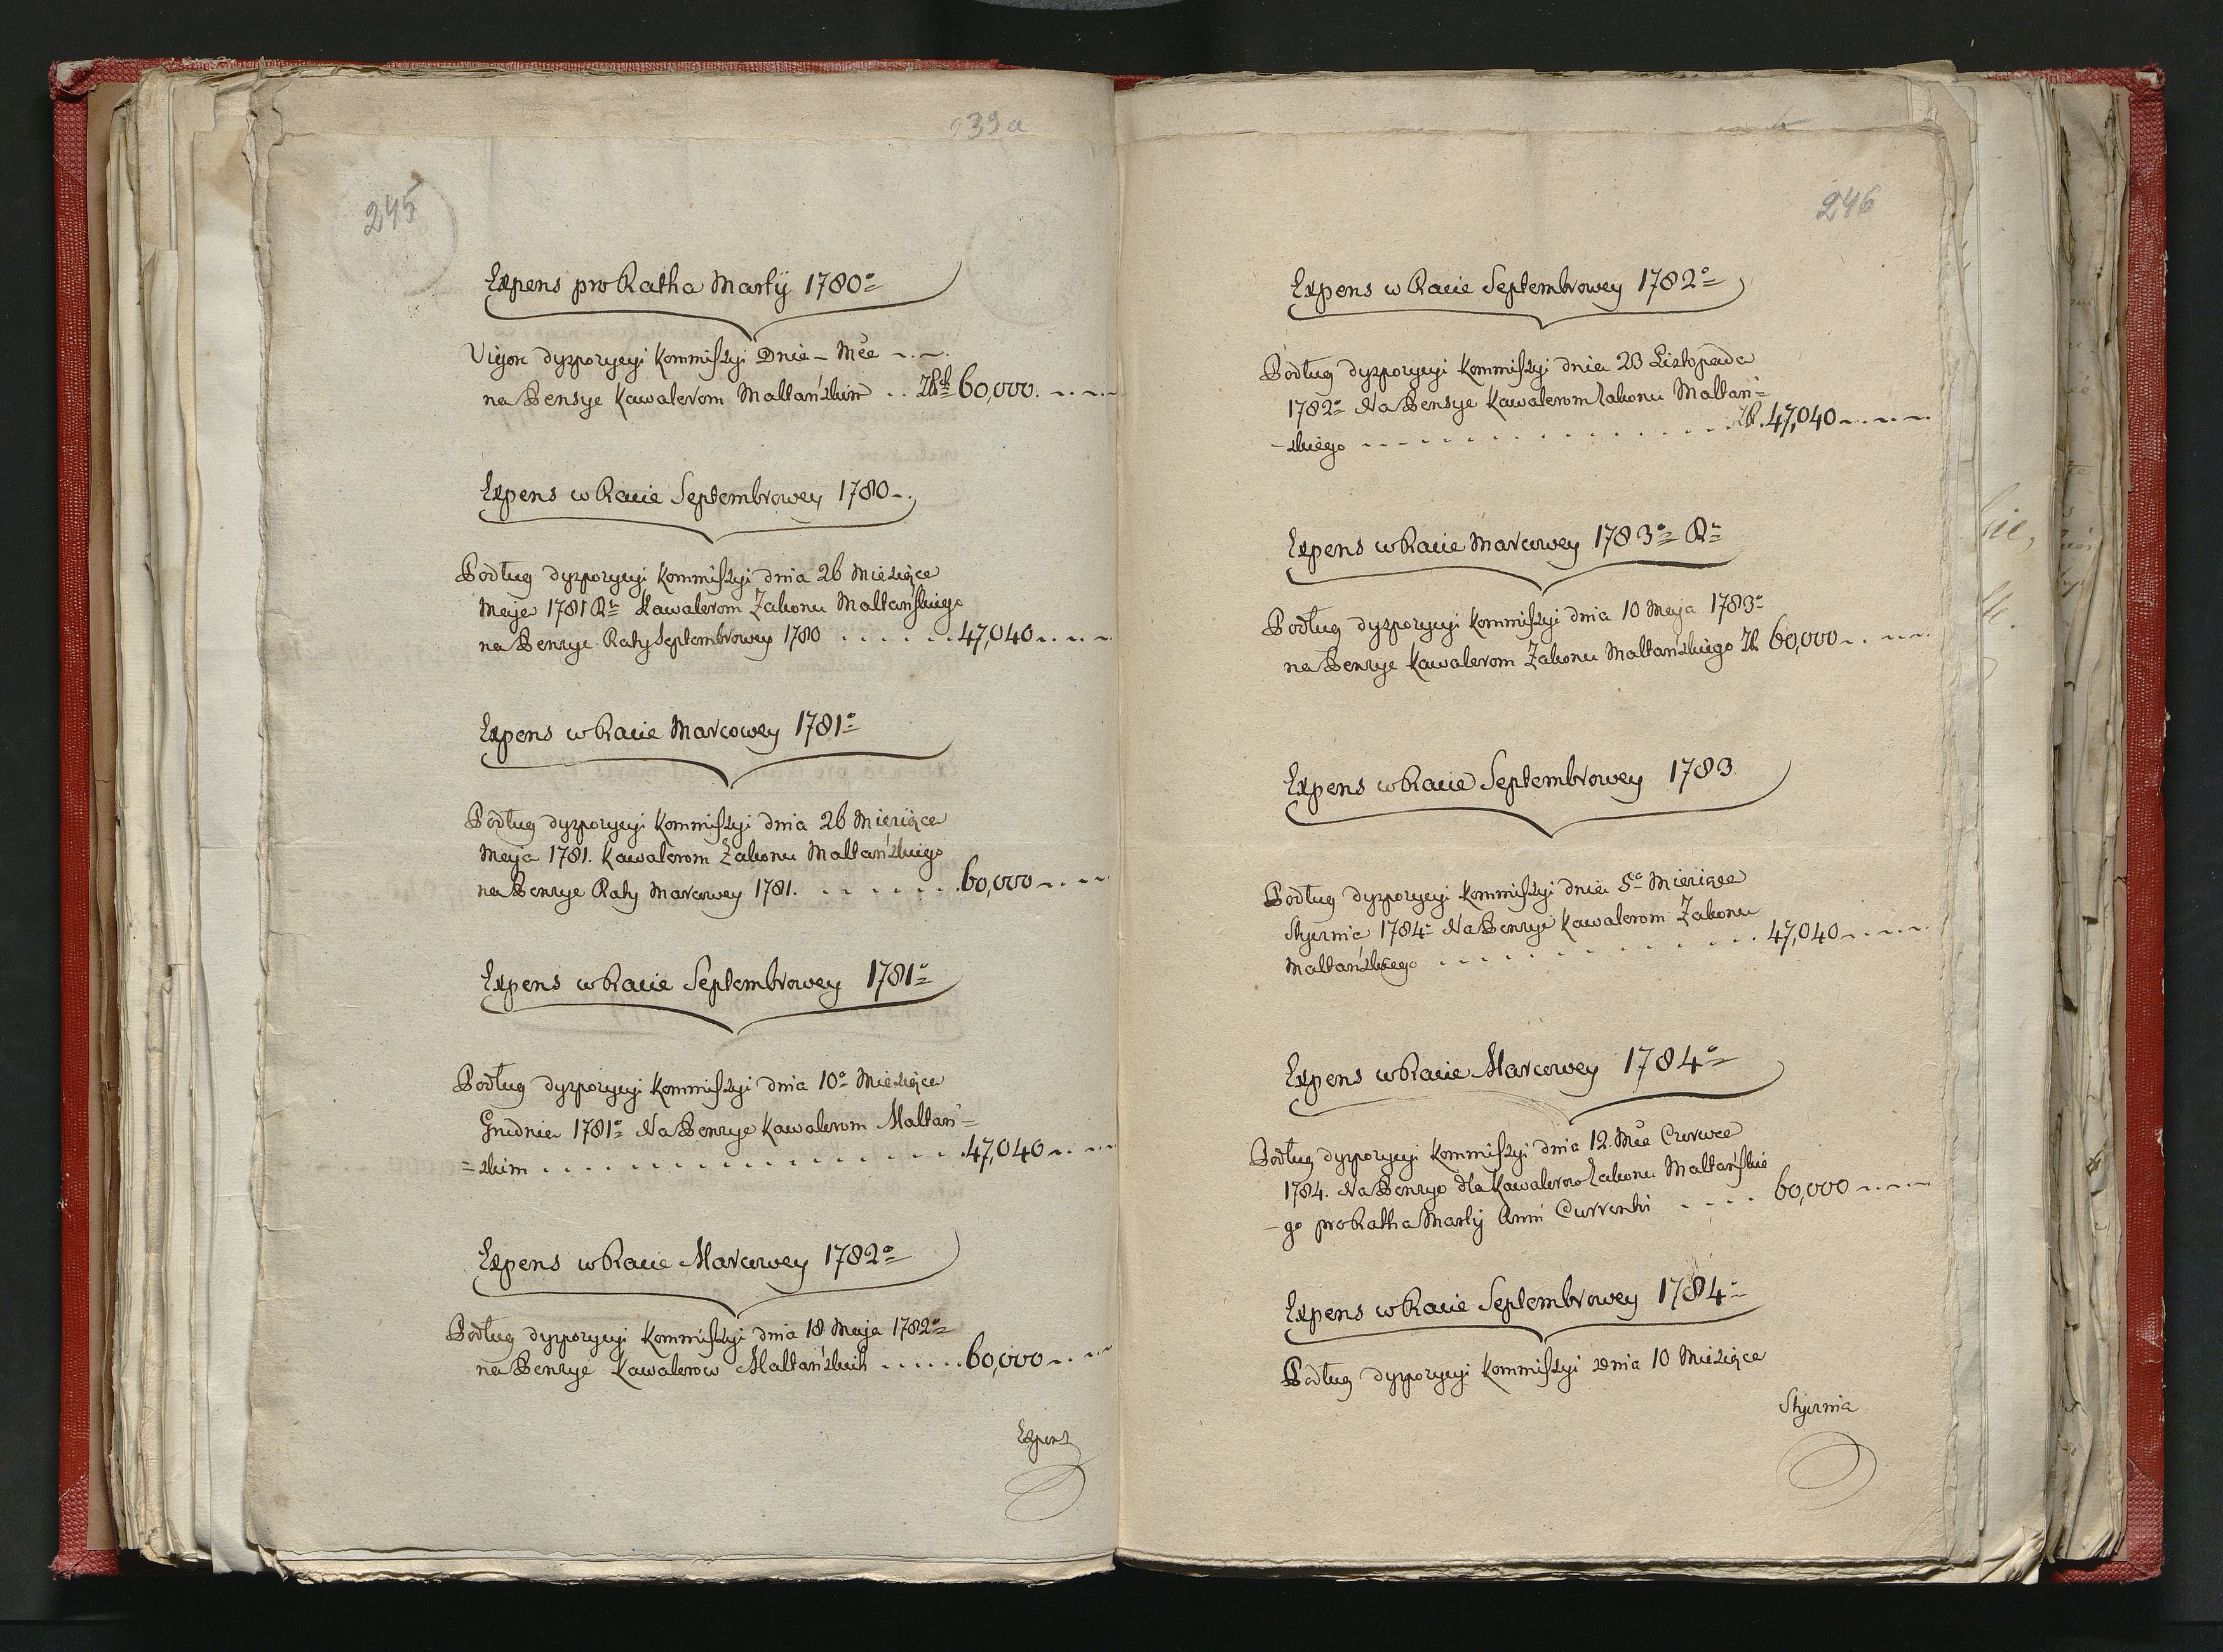 239a
245
Expens pro Ratha Martÿ 1780º
Vigore dyzpozycyi Kommiſzyi Dnia – Mca
na Pensye Kawalerom Maltańzkim .. Złł 60,000.
Expens w Racie Septembrowey 1780
Podług dyzpozycyi Kommiſzyi dnia 26 Mieziąca
Maja 1781 Rº Kawalerom Zakonu Maltańſkiego
na Penzye Raty Septembrowey 1780 . . . . . . 47,040
Expens w Racie Marcowey 1781º
Podług dyzpozycyi Kommiſzyi dnia 26 Mieziąca
Maja 1781. Kawalerom Zakonu Maltańzkiego
na Penzye Raty Marcowey 1781. . . . . . . . 60,000
Expens w Racie Septembrowey 1781º
Podług dyzpozycyi Kommiſzyi dnia 10º Mieziąca
Grudnia 1781º Na Penzye Kawalerom Maltań=
=zkim . . . . . . . . . . . . . . . . 47,040
Expens w Racie Marcowey 1782º
Podług dyzpozycyi Kommiſzyi dnia 18 Maja 1782º
na Penzye Kawalerow Maltańzkich . . . . . . 60,000
Expens
246
Expens w Racie Septembrowey 1782º
Podług dyzpozycyi Kommiſzyi dnia 23 Liztopada
1782º Na Pensye Kawalerom Zakonu Maltań=
-zkiego . . . . . . . . . . . . . . . Zł. 47,040
Expens w Racie Marcowey 1783º Rº
Podług dyzpozycyi Kommiſzyi dnia 10 Maja 1783º
na Penzye Kawalerom Zakonu Maltańzkiego Zł 60,000
Expens w Racie Septembrowey 1783
Podług dyzpozycyi Kommiſzyi dnia 5º Mieziąca
Stycznia 1784º Na Penzye Kawalerom Zakonu
Maltańzkiego . . . . . . . . . . . . 47,040
Expens w Racie Marcowey 1784º
Podług dyzpozycyi Kommiſzyi dnia 12. Mca Czerwca
1784. Na Penzye dla Kawalerow Zakonu Maltańſkie
-go pro Ratha Martÿ Anni Currentis . . . . 60,000
Expens w Racie Septembrowey 1784º
Podług dyzpozycyi Kommiſzyi dnia 10 Mieziąca
Stycznia